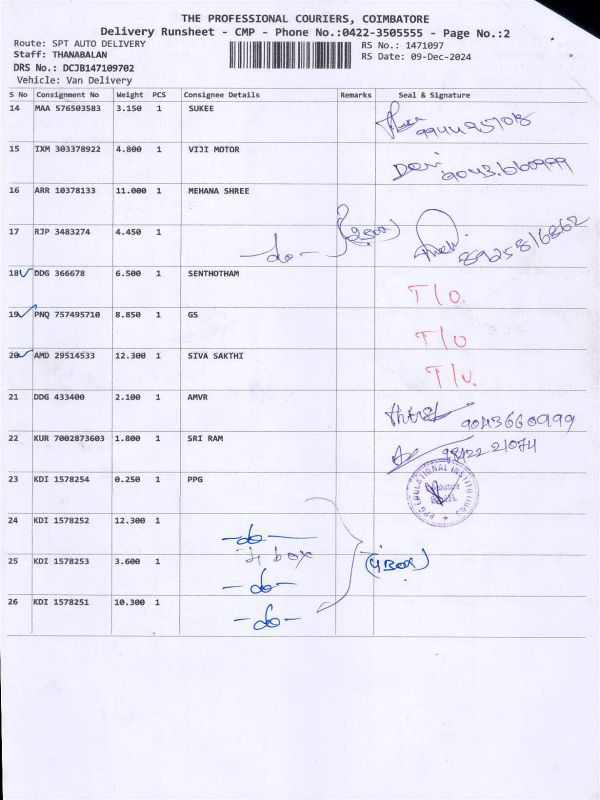 THE PROFESSIONAL COURIERS, COIMBATORE
Delivery Runsheet - CMP - Phone No.:0422-3505555 - Page No.:2
Route: SPT AUTO DELIVERY
RS No.: 1471097
Staff: THANABALAN
RS Date: 09-Dec-2024
DRS No.: DCJB147109702
Vehicle: Van Delivery
S No Consignment No Weight PCS Consignee Details Remarks Seal & Signature
14 MAA 576503583 3.150 1 SUKEE 9944957018
15 IXM 303378922 4.800 1 VIJI MOTOR Devi 9043660999
16 ARR 10378133 11.000 1 MEHANA SHREE
17 RJP 3483274 4.450 1 -do- (2Box) 8925816862
18 DDG 366678 6.500 1 SENTHOTHAM T/O.
19 PNQ 757495710 8.850 1 GS T/O
20 AMD 29514533 12.300 1 SIVA SAKTHI T/O.
21 DDG 433400 2.100 1 AMVR 9043660999
22 KUR 7002873603 1.800 1 SRI RAM 98422 21074
23 KDI 1578254 0.250 1 PPG
PPG EDUCATIONAL INSTITUTIONS
24 KDI 1578252 12.300 1 -do-
4 box
25 KDI 1578253 3.600 1 -do- (4Box)
26 KDI 1578251 10.300 1 -do-